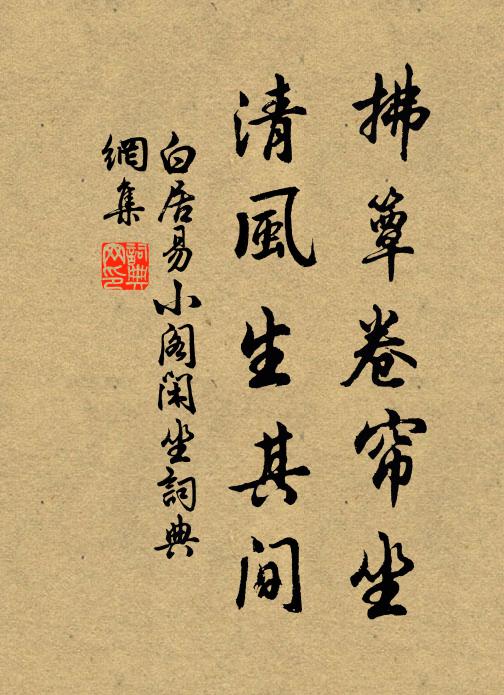 拂簟卷帘坐
清風生其间
白居易小阁闲坐詞典
網集
詞典
网印